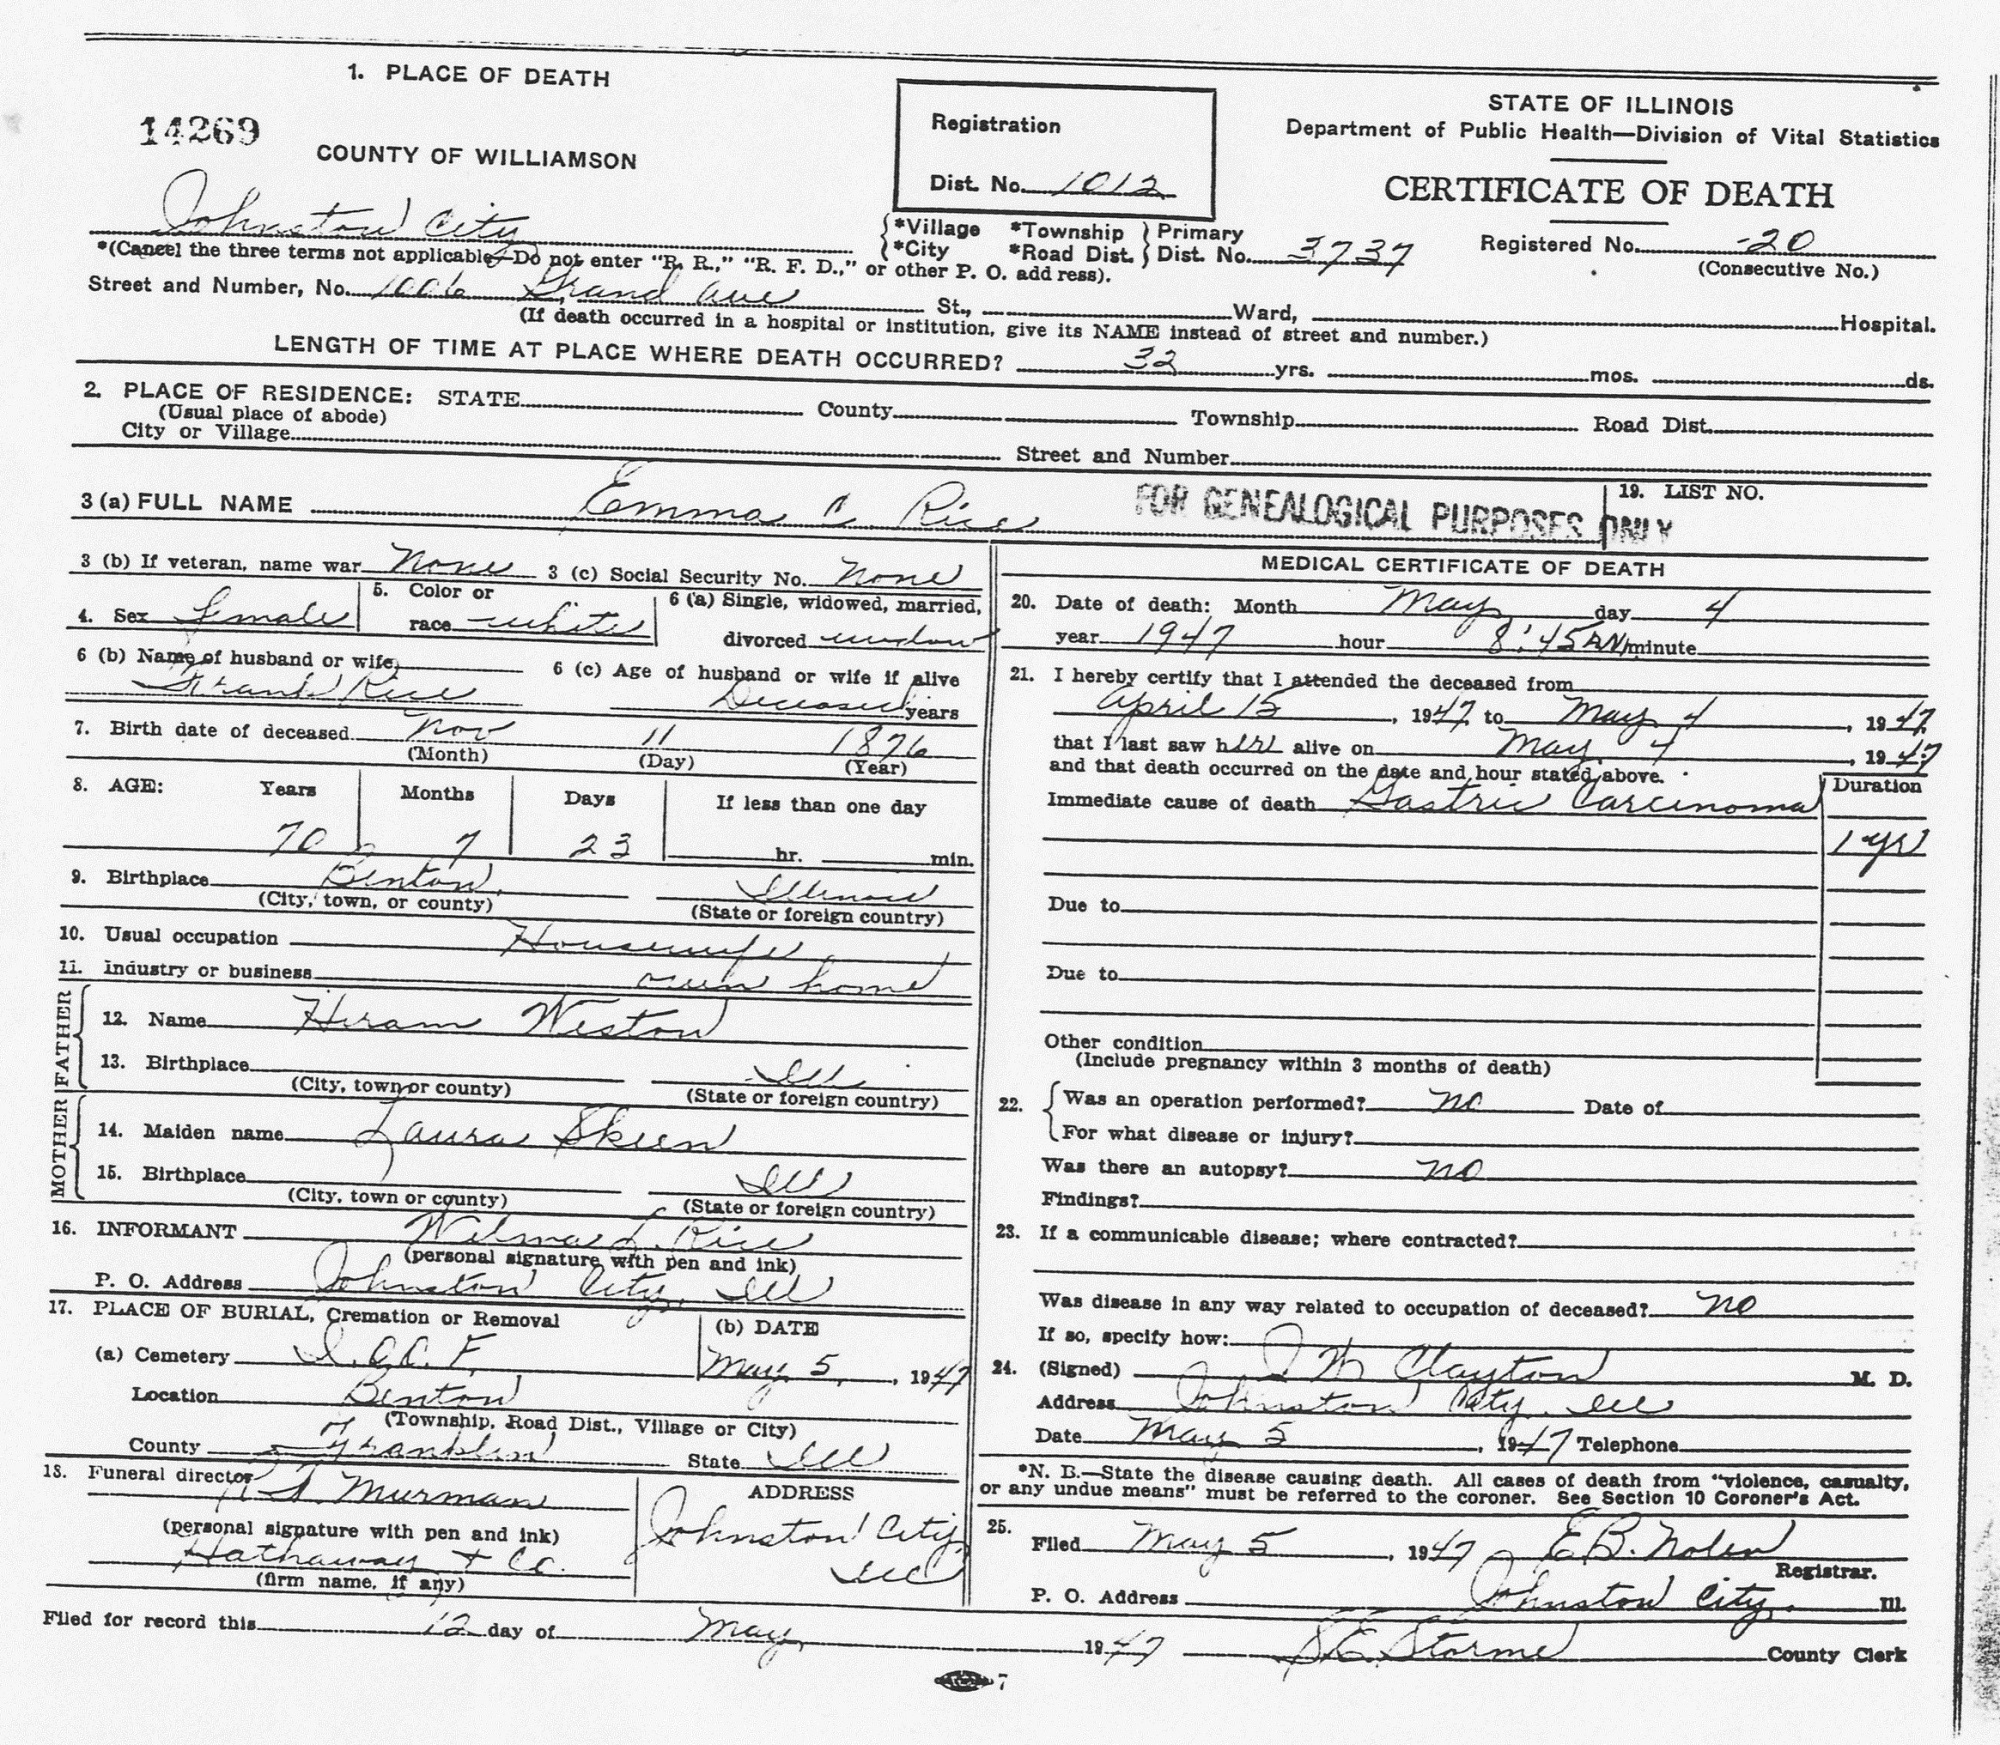 1. PLACE OF DEATH
14269
COUNTY OF WILLIAMSON
Registration
Dist. No. 1012
STATE OF ILLINOIS
Department of Public Health—Division of Vital Statistics
CERTIFICATE OF DEATH
Johnston City
*Village *Township Primary
*City *Road Dist. Dist. No. 3737
Registered No. 20
(Consecutive No.)
*(Cancel the three terms not applicable—Do not enter "R. R.," "R. F. D.," or other P. O. add ress).
Street and Number, No. 1006 Grand Ave St., Ward, Hospital.
(If death occurred in a hospital or institution, give its NAME instead of street and number.)
LENGTH OF TIME AT PLACE WHERE DEATH OCCURRED? 32 yrs. mos. ds.
2. PLACE OF RESIDENCE: STATE County Township Road Dist.
(Usual place of abode)
City or Village Street and Number
3 (a) FULL NAME Emma C. Rice
FOR GENEALOGICAL PURPOSES ONLY
19. LIST NO.
3 (b) If veteran, name war None 3 (c) Social Security No. None
4. Sex female
5. Color or
race white
6 (a) Single, widowed, married,
divorced widow
6 (b) Name of husband or wife
Frank Rice
6 (c) Age of husband or wife if alive
Deceased years
7. Birth date of deceased Nov 11 1876
(Month) (Day) (Year)
8. AGE: Years Months Days If less than one day
70 7 23 hr. min.
9. Birthplace Benton, Illinois
(City, town, or county) (State or foreign country)
10. Usual occupation Housewife
11. Industry or business own home
FATHER
12. Name Hiram Weston
13. Birthplace Ill
(City, town or county) (State or foreign country)
MOTHER
14. Maiden name Laura Skeen
15. Birthplace Ill
(City, town or county) (State or foreign country)
16. INFORMANT Wilma L. Rice
(personal signature with pen and ink)
P. O. Address Johnston City, Ill
17. PLACE OF BURIAL, Cremation or Removal
(b) DATE
(a) Cemetery I.O.O.F.
May 5, 1947
Location Benton
(Township, Road Dist., Village or City)
County Franklin State Ill
18. Funeral director R T. Murman
(personal signature with pen and ink)
Hathaway + Co.
(firm name, if any)
ADDRESS
Johnston City,
Ill
MEDICAL CERTIFICATE OF DEATH
20. Date of death: Month May day 4
year 1947 hour 8:45 AM minute
21. I hereby certify that I attended the deceased from
April 15, 1947 to May 4, 1947
that I last saw her alive on May 4, 1947
and that death occurred on the date and hour stated above.
Duration
Immediate cause of death Gastric Carcinoma
1 yr
Due to
Due to
Other condition
(Include pregnancy within 3 months of death)
22. Was an operation performed? no Date of
For what disease or injury?
Was there an autopsy? no
Findings?
23. If a communicable disease; where contracted?
Was disease in any way related to occupation of deceased? no
If so, specify how:
24. (Signed) J W Clayton M. D.
Address Johnston City, Ill
Date May 5, 1947 Telephone
*N. B.—State the disease causing death. All cases of death from "violence, casualty,
or any undue means" must be referred to the coroner. See Section 10 Coroner's Act.
25.
Filed May 5, 1947 E B. Nolen
Registrar.
P. O. Address Johnston City, Ill.
Filed for record this 12 day of May, 1947 S.E. Storme County Clerk
7